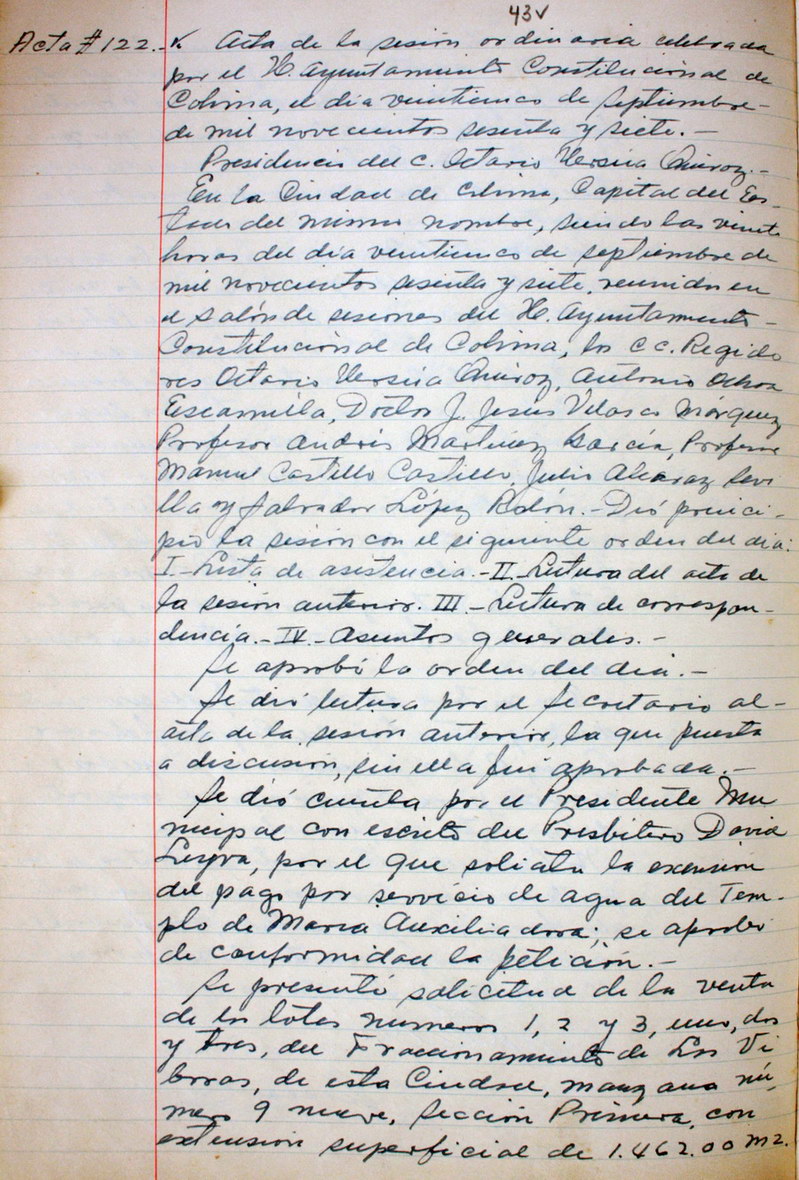 43v
Acta # 122.- Acta de la sesión ordinaria celebrada
por el H. Ayuntamiento Constitucional de
Colima, el día veinticinco de septiembre-
de mil novecientos sesenta y siete.-
Presidencia del C. Octavio Versia Quiroz.-
En la Ciudad de Colima, Capital del Es-
tado del mismo nombre, siendo las veinte
horas del día veinticinco de septiembre de
mil novecientos sesenta y siete, reunidos en
el salón de sesiones del H. Ayuntamiento-
Constitucional de Colima, los CC. Regido
res Octavio Versia Quiroz, Antonio Ochoa
Escamilla, Doctor J. Jesús Velasco Márquez
Profesor Andrés Martínez García, Profesor
Manuel Castillo Castillo, Julio Alcaraz Sevi
lla y Salvador López Rolón.- Dió princi-
pio la sesión con el siguiente orden del día:
I.- Lista de asistencia.- II.- Lectura del acta de
la sesión anterior. III.- Lectura de correspon-
dencia.- IV.- Asuntos generales.-
Se aprobó la orden del día.-
Se dió lectura por el Secretario al-
acta de la sesión anterior, la que puesta
a discusión, sin ella fué aprobada.-
Se dió cuenta por el Presidente Mu
nicipal con escrito del Presbítero David
Leyva, por el que solicita la exensión
del pago por servicio de agua del Tem-
plo de María Auxiliadora; se aprobó
de conformidad la petición.-
Se presentó solicitud de la venta
de los lotes números 1, 2 y 3, uno, dos
y tres, del Fraccionamiento de Las Ví
boras, de esta Ciudad, manzana nú-
mero 9 nueve, Sección Primera, con
extensión superficial de 1.462.00 m2.